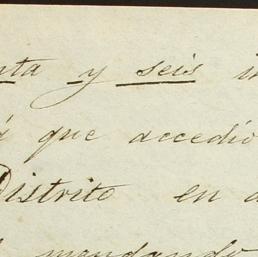 nta y seis
que accedió
Distrito en
mandando